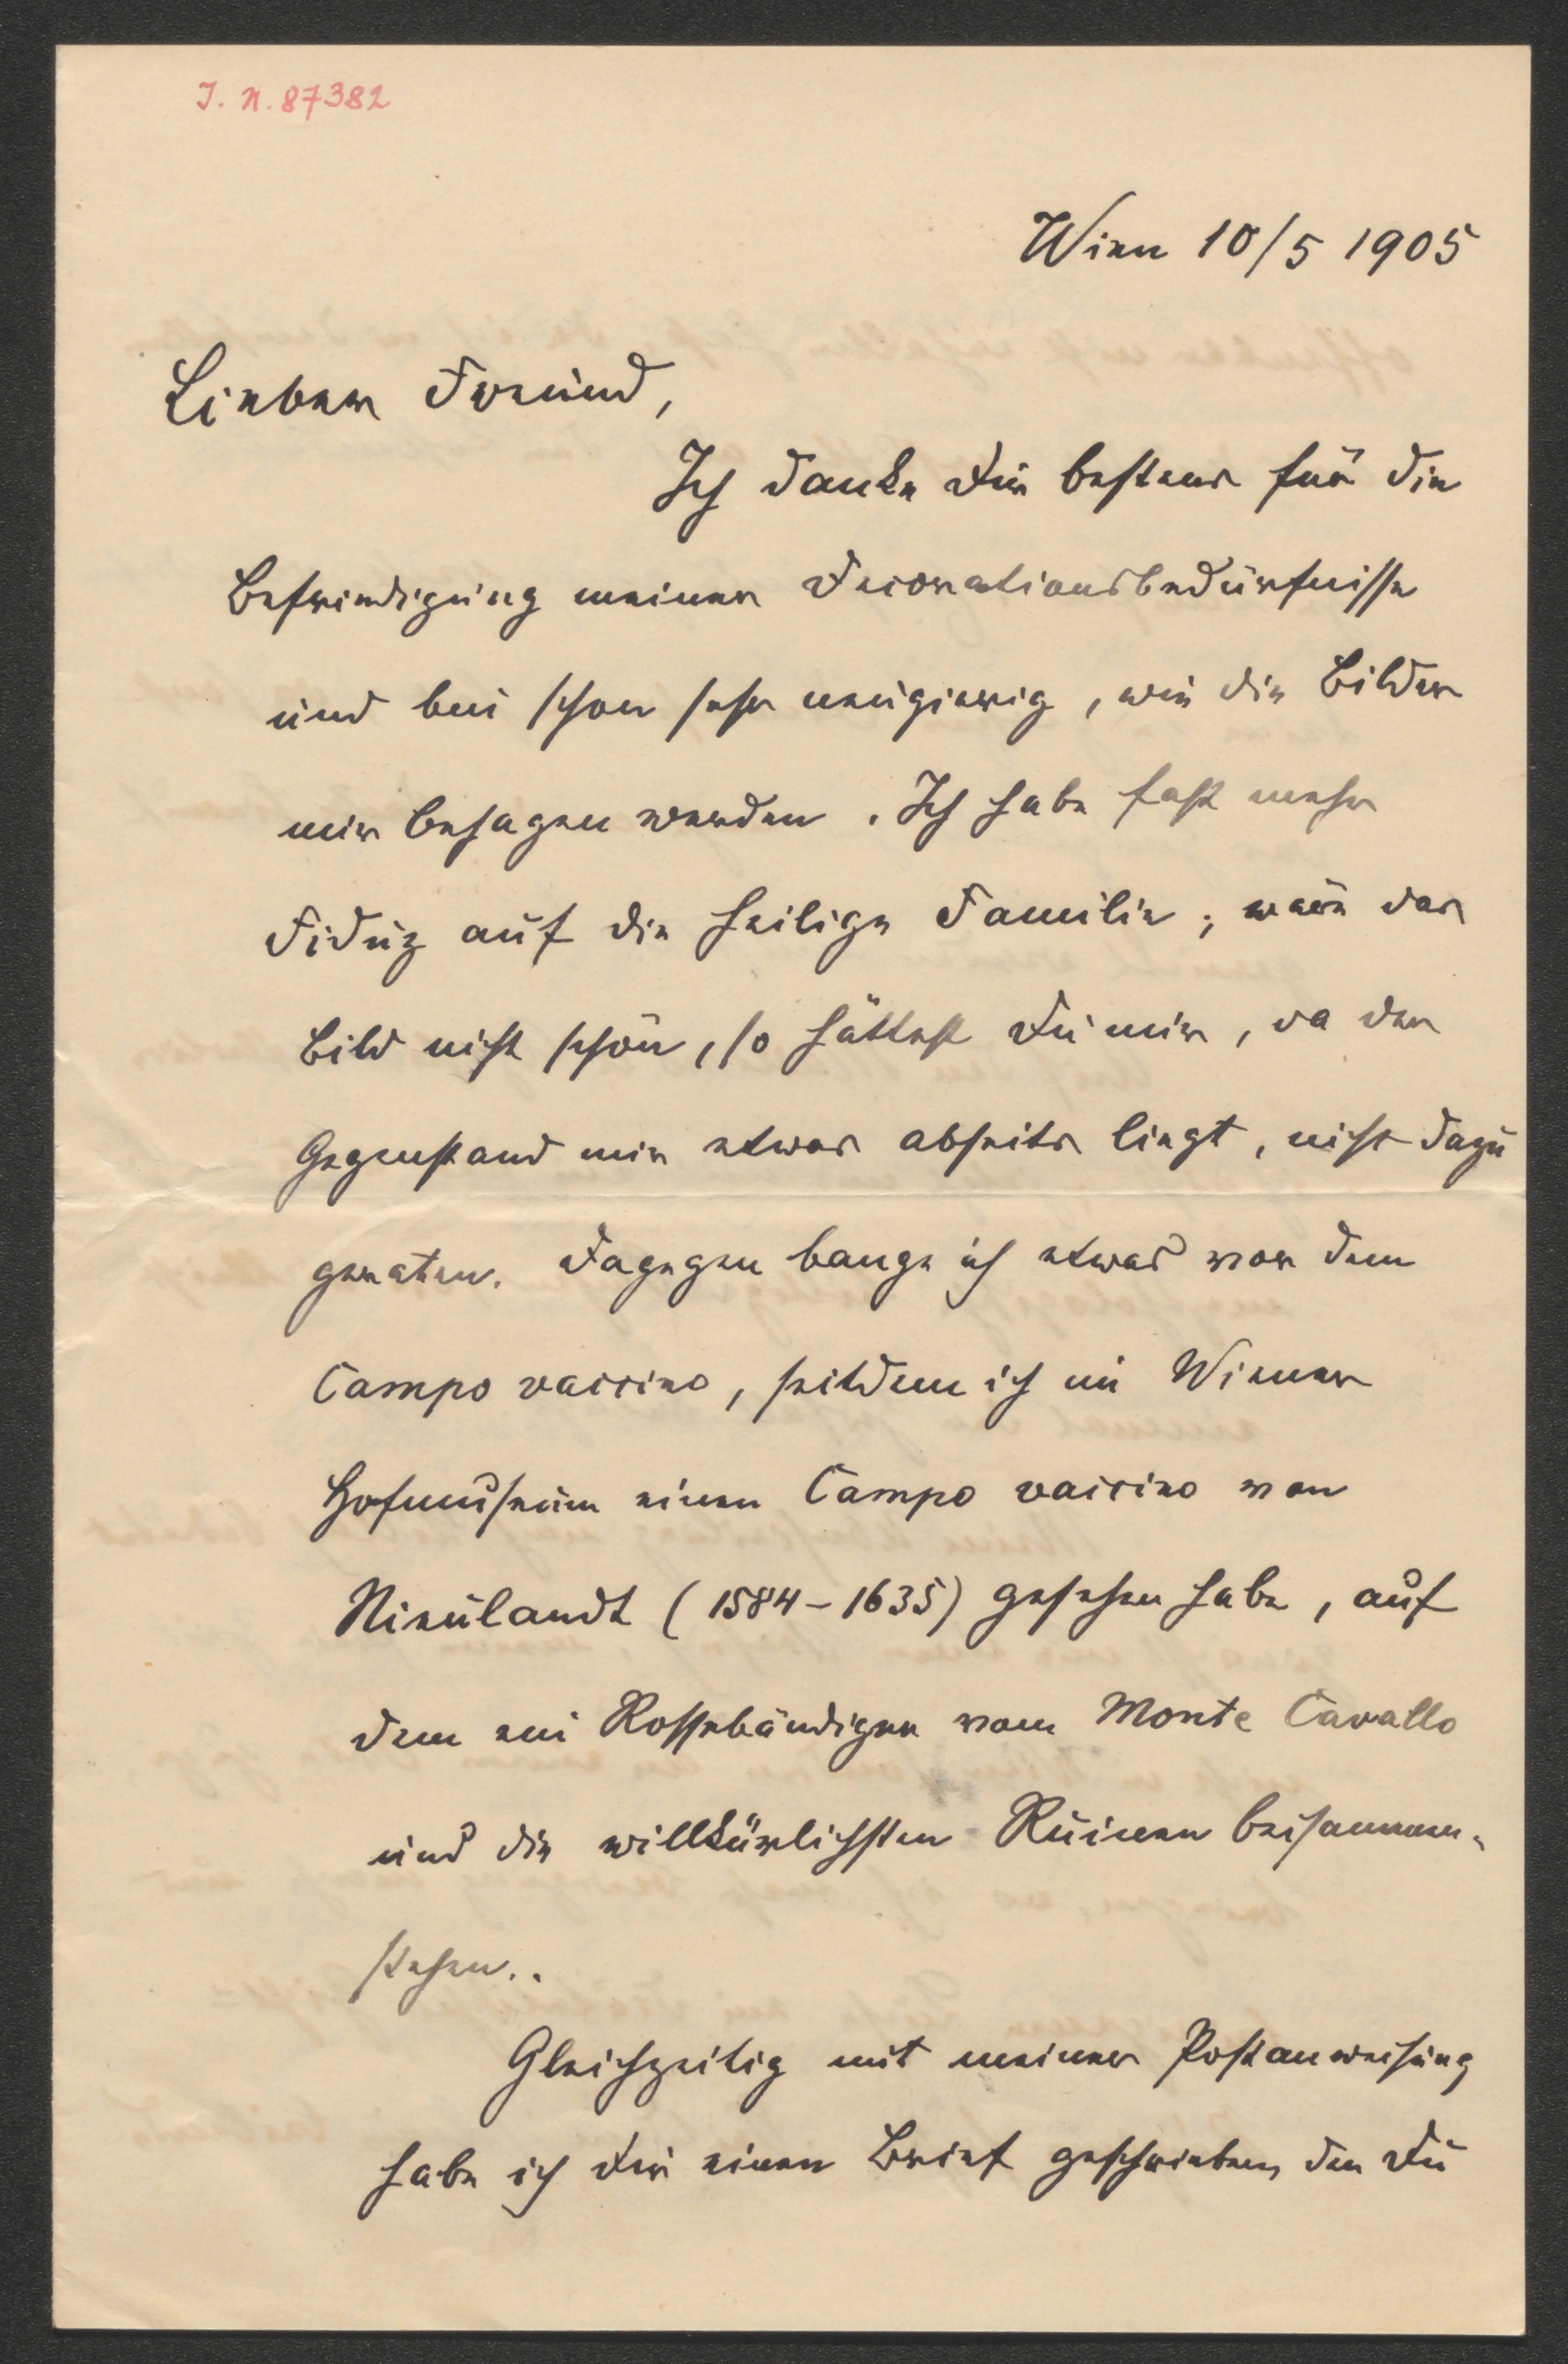 I. N. 87382
Wien 10/5 1905
Lieber Freund,
Ich danke Dir bestens für die
Befriedigung meiner Decorationsbedürfnisse
und bin schon sehr neugierig, wie die Bilder
mir behagen werden. Ich habe fast mehr
Fiduz auf die heilige Familie; wäre das
Bild nicht schön, so hättest Du mir, da der
Gegenstand mir etwas abseits liegt, nicht dazu
geraten. Dagegen bange ich etwas vor dem
Campo vaccino, seitdem ich im Wiener
Hofmuseum einen Campo vaccino von
Nieulandt (1584-1635) gesehen habe, auf
dem ein Rossebändiger vom Monte Cavallo
und die willkürlichsten Ruinen beisammen-
stehen..
Gleichzeitig mit meiner Postanweisung
habe ich Dir einen Brief geschrieben, den Du